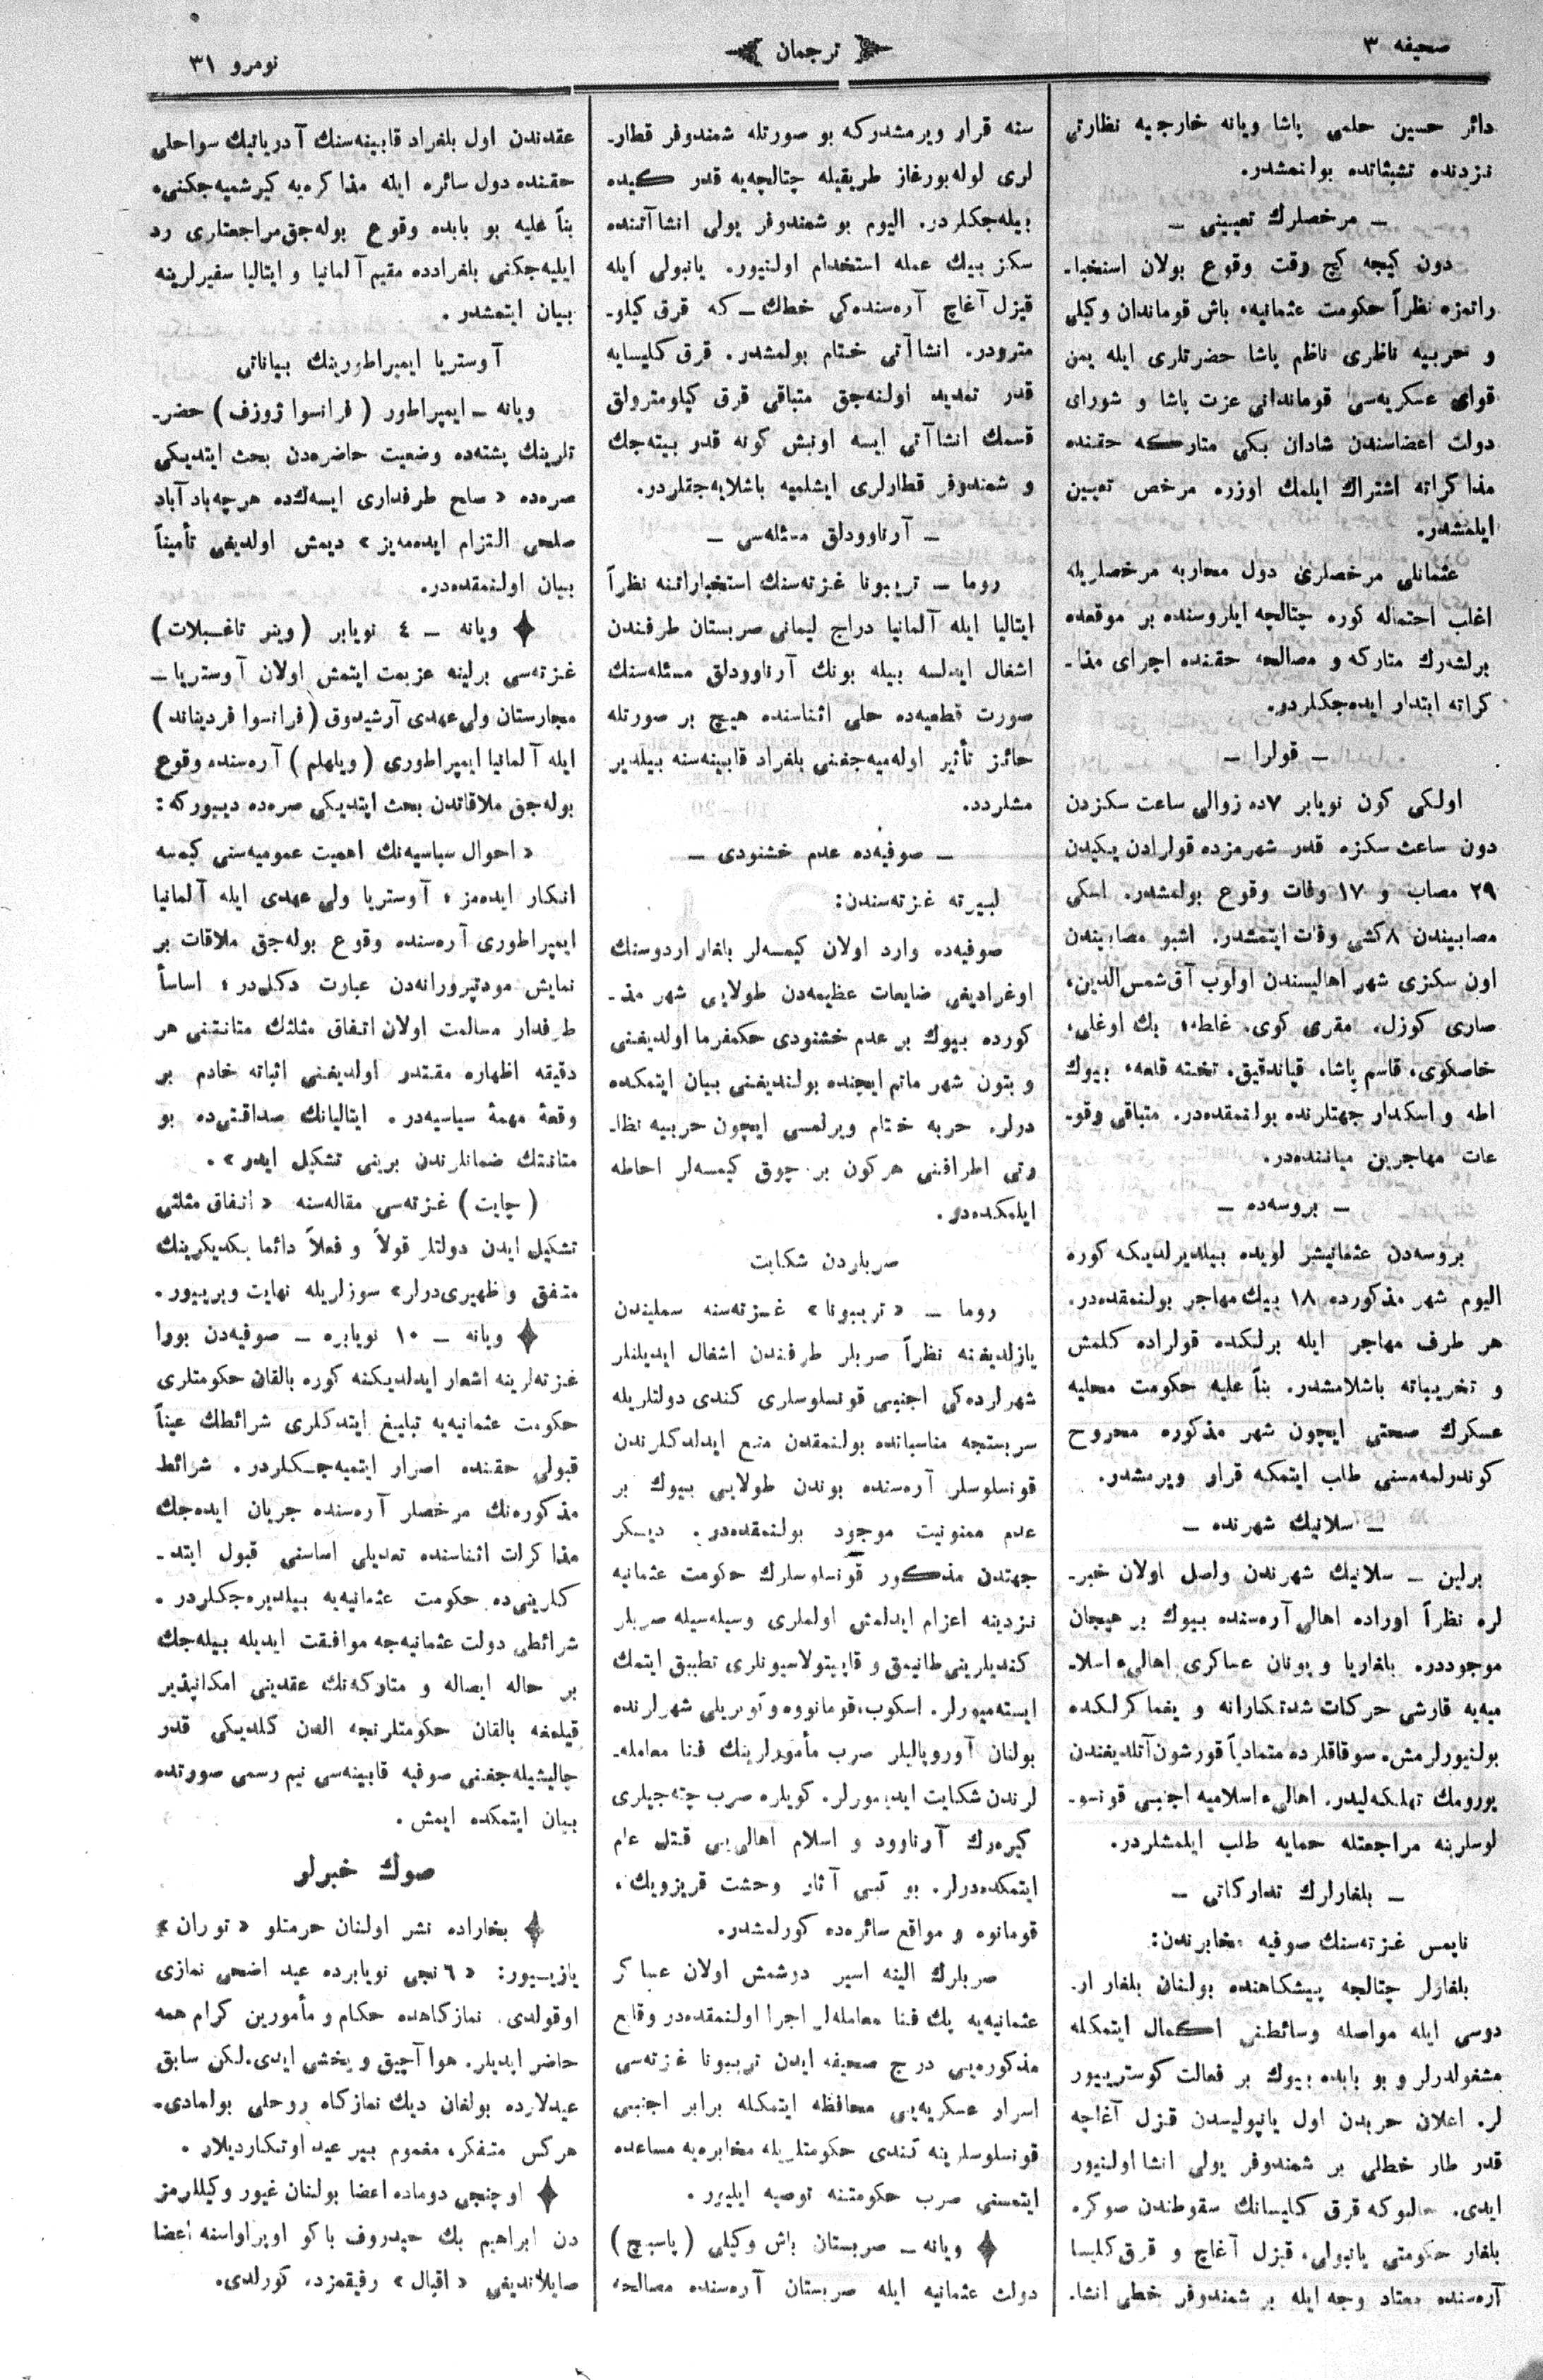 صحیفه ٣
ترجمان
نومرو ٣١
دائر حسین حلمی پاشا ویانه خارجیه نظارتی
نزدنده تشبثاتده بولنمشدر.
ــ مرخصلرك تعیینی ــ
دون کیجه کچ وقت وقوع بولان استخبا۔
راتمزه نظراً حکومت عثمانیه، باش قوماندان وکیلی
و حربیه ناظری ناظم پاشا حضرتلری ایله یمن
قوای عسکریه‌سی قوماندانی عزت پاشا و شورای
دولت اعضاسندن شادان بکی متارکه حقنده
مذاکراته اشتراك ایلمك اوزره مرخص تعیین
ایلمشدر.
عثمانلی مرخصلری دول محاربه مرخصلریله
اغلب احتماله کوره چتالجه ایلروسنده بر موقعده
برلشه‌رك متارکه و مصالحه حقنده اجرای مذا۔
کراته ابتدار ایده‌جکلردر.
ــ قولرا ــ
اولکی کون نویابر ٧ده زوالی ساعت سکزدن
دون ساعت سکزه قدر شهرمزده قولرادن یکیدن
٢٩ مصاب و ١٧ وفات وقوع بولمشدر. اسکی
مصابیندن ٨ کشی وفات ایتمشدر. اشبو مصابیندن
اون سکزی شهر اهالیسندن اولوب آق شمس الدین،
صاری کوزل، مقری کوی، غلطه، بك اوغلی،
خاصکوی، قاسم پاشا، قپاندقیق، تخته قلعه، بیوك
اطه و اسکدار جهتلرنده بولنمقده‌در. متباقی وقو۔
عات مهاجرین میاننده‌در.
ــ بروسه‌ده ــ
بروسه‌دن عثمانیشر لویده بیلدیرلدیکه کوره
الیوم شهر مذکورده ١٨ بیك مهاجر بولنمقده‌در.
هر طرف مهاجر ایله برلکده قولراده کلمش
و تخریباته باشلامشدر. بناً علیه حکومت محلیه
عسکرك صحتی ایچون شهر مذکوره مجروح
کوندرلمه‌مسنی طلب ایتمکه قرار ویرمشدر.
ــ سلانیك شهرنده ــ
برلین ــ سلانیك شهرندن واصل اولان خبر۔
لره نظراً اوراده اهالی آره‌سنده بیوك بر هیجان
موجوددر. بلغاریا و یونان عساکری اهالیء اسلا۔
میه‌یه قارشی حرکات شدتکارانه و یغماکرلکده
بولنیورلرمش. سوقاقلرده متمادیاً قورشون آتلدیغندن
یورومك تهلکه‌لیدر. اهالیء اسلامیه اجنبی قونسو۔
لوسلرینه مراجعتله حمایه طلب ایلمشلردر.
ــ بلغارلرك تدارکاتی ــ
تایمس غزته‌سنك صوفیه مخابرندن:
بلغارلر چتالجه پیشکاهنده بولنان بلغار ار۔
دوسی ایله مواصله وسائطنی اکمال ایتمکله
مشغولدرلر و بو بابده بیوك بر فعالت کوستریپور
لر. اعلان حربدن اول یانپولیسدن قزل آغاچه
قدر طار خطلی بر شمندوفر یولی انشا اولنیور
ایدی. حالبوکه قرق کلیسانك سقوطندن صوکره
بلغار حکومتی یانپولی، قیزل آغاچ و قرق کلیسا
آره‌سنده معتاد وجه ایله بر شمندوفر خطی انشا۔
سنه قرار ویرمشدرکه بو صورتله شمندوفر قطار۔
لری لوله‌بورغاز طریقیله چتالجه‌یه قدر کیده
بیله‌جکلردر. الیوم بو شمندوفر یولی انشاآتنده
سکز بیك عمله استخدام اولنیور. یانبولی ایله
قیزل آغاچ آره‌سنده‌کی خطك ــ که قرق کیلو۔
مترودر. انشاآتی ختام بولمشدر. قرق کلیسایه
قدر تمدید اولنه‌جق متباقی قرق کیلومترولق
قسمك انشاآتی ایسه اونبش کونه قدر بیته‌جك
و شمندوفر قطارلری ایشلمیه باشلایه‌جقلردر.
ــ آرناوودلق مسئله‌سی ــ
روما ــ تریبونا غزته‌سنك استخباراتنه نظراً
ایتالیا ایله آلمانیا دراج لیمانی صربستان طرفندن
اشغال ایدلسه بیله بونك آرناوودلق مسئله‌سنك
صورت قطعیه‌ده حلی اثناسنده هیچ بر صورتله
حائز تأثیر اوله‌میه‌جغنی بلغراد قابینه‌سنه بیلدیر
مشلردد.
ــ صوفیه‌ده عدم خشنودی ــ
لیبرته غزته‌سندن:
صوفیه‌ده وارد اولان کیمسه‌لر بلغار اردوسنك
اوغرادیغی ضایعات عظیمه‌دن طولایی شهر مذ۔
کورده بیوك بر عدم خشنودی حکمفرما اولدیغنی
و بتون شهر ماتم ایچنده بولندیغنی بیان ایتمکده
درلر. حربه ختام ویرلمسی ایچون حربیه نظا۔
رتی اطرافنی هرکون بر چوق کیمسه‌لر احاطه
ایلمکده‌در.
صربلردن شکایت
روما ــ «تریبونا» غزته‌سنه سملیندن
یازلدیغنه نظراً صربلر طرفندن اشغال ایدیلنلر
شهرلرده‌کی اجنبی قونسلوسلری کندی دولتلریله
سربستجه مناسباتده بولنمقدن منع ایدلدکلرندن
قونسلوسلر آره‌سنده بوندن طولایی بیوك بر
عدم ممنونیت موجود بولنمقده‌در. دیکر
جهتدن مذکور قونسلوسلرك حکومت عثمانیه
نزدینه اعزام ایدلمش اولملری وسیله‌سیله صربلر
کندیلرینی طانیمق و قاپیتولاسیونلری تطبیق ایتمك
ایسته‌میورلر. اسکوب، قومانووه و کوپریلی شهرلرنده
بولنان آوروپالیلر صرب مأمورلرینك فنا معامله۔
لرندن شکایت ایدیورلر. کویلره صرب چته‌جیلری
کیره‌رك آرناوود و اسلام اهالی‌یی قتل عام
ایتمکده‌درلر. بو قبیل آثار وحشت قریزویك،
قومانوه و مواقع سائره‌ده کورلمشدر.
صربلرك الینه اسیر دوشمش اولان عساکر
عثمانیه‌یه پك فنا معامله‌لر اجرا اولنمقده‌در وقایع
مذکوره‌یی درج صحیفه ایدن تریبونا غزته‌سی
اسرار عسکریه‌یی محافظه ایتمکله برابر اجنبی
قونسلوسلرینه کندی حکومتلریله مخابره‌یه مساعده
ایتمسنی صرب حکومتنه توصیه ایلیور.
ویانه ــ صربستان باش وکیلی (پاسیچ)
دولت عثمانیه ایله صربستان آره‌سنده مصالحه
عقدندن اول بلغراد قابینه‌سنك آدریاتیك سواحلی
حقنده دول سائره ایله مذاکره‌یه کیرشمیه‌جکنی،
بناً علیه بو بابده وقوع بوله‌جق مراجعتلری رد
ایلیه‌جکنی بلغرادده مقیم آلمانیا و ایتالیا سفیرلرینه
بیان ایتمشدر.
آوستریا ایمپراطورینك بیاناتی
ویانه ــ ایمپراطور (فرانسوا ژوزف) حضر۔
تلرینك پشته‌ده وضعیت حاضره‌دن بحث ایتدیکی
صره‌ده «صلح طرفداری ایسه‌ك‌ده هرچه‌باد آباد
صلحی التزام ایده‌مه‌یز» دیمش اولدیغی تأمیناً
بیان اولنمقده‌در.
ویانه ــ ٤ نویابر (وینر تاغبلات)
غزته‌سی برلینه عزیمت ایتمش اولان آوستریا ــ
مجارستان ولی عهدی آرشیدوق (فرانسوا فردیناند)
ایله آلمانیا ایمپراطوری (ویلهلم) آره‌سنده وقوع
بوله‌جق ملاقاتدن بحث ایتدیکی صره‌ده دییورکه:
«احوال سیاسیه‌نك اهمیت عمومیه‌سنی کیمسه
انکار ایده‌مز؛ آوستریا ولی عهدی ایله آلمانیا
ایمپراطوری آره‌سنده وقوع بوله‌جق ملاقات بر
نمایش مودتپرورانه‌دن عبارت دکلدر؛ اساساً
طرفدار مسالمت اولان اتفاق مثلثك متانتنی هر
دقیقه اظهاره مقتدر اولدیغنی اثباته خادم بر
وقعهٔ مهمهٔ سیاسیه‌در. ایتالیانك صداقتی‌ده بو
متانتك ضمانلرندن برینی تشکیل ایدر».
(چایت) غزته‌سی مقاله‌سنه «اتفاق مثلثی
تشکیل ایدن دولتلر قولاً و فعلاً دائما یکدیکرینك
متفق و ظهیری‌درلر» سوزلریله نهایت ویرییور.
ویانه ــ ١٠ نویابره ــ صوفیه‌دن بورا
غزته‌لرینه اشعار ایدلدیکنه کوره بالقان حکومتلری
حکومت عثمانیه‌یه تبلیغ ایتدکلری شرائطك عیناً
قبولی حقنده اصرار ایتمیه‌جکلردر. شرائط
مذکوره‌نك مرخصلر آره‌سنده جریان ایده‌جك
مذاکرات اثناسنده تعدیلی اساسنی قبول ایتد۔
کلرینی‌ده حکومت عثمانیه‌یه بیلدیره‌جکلردر.
شرائطی دولت عثمانیه‌جه موافقت ایدیله بیله‌جك
بر حاله ایصاله و متارکه‌نك عقدینی امکانپذیر
قیلمغه بالقان حکومتلرنجه الدن کلدیکی قدر
چالیشیله‌جغنی صوفیه قابینه‌سی نیم رسمی صورتده
بیان ایتمکده ایمش.
صوك خبرلر
بخاراده نشر اولنان حرمتلو «توران»
یازیبیور: «٦نجی نویابرده عید اضحی نمازی
اوقولدی. نمازکاهده حکام و مأمورین کرام همه
حاضر ایدیلر. هوا آچیق و یخشی ایدی. لکن سابق
عیدلارده بولغان دیك نمازکاه روحلی بولمادی.
هرکس متفکر، مغموم بیر عید اوتکاردیلار.
اوچنجی دوماده اعضا بولنان غیور وکیللرمز
دن ابراهیم بك حیدروف باکو اوپراواسنه اعضا
صایلاندیغی «اقبال» رفیقمزده کورلدی.